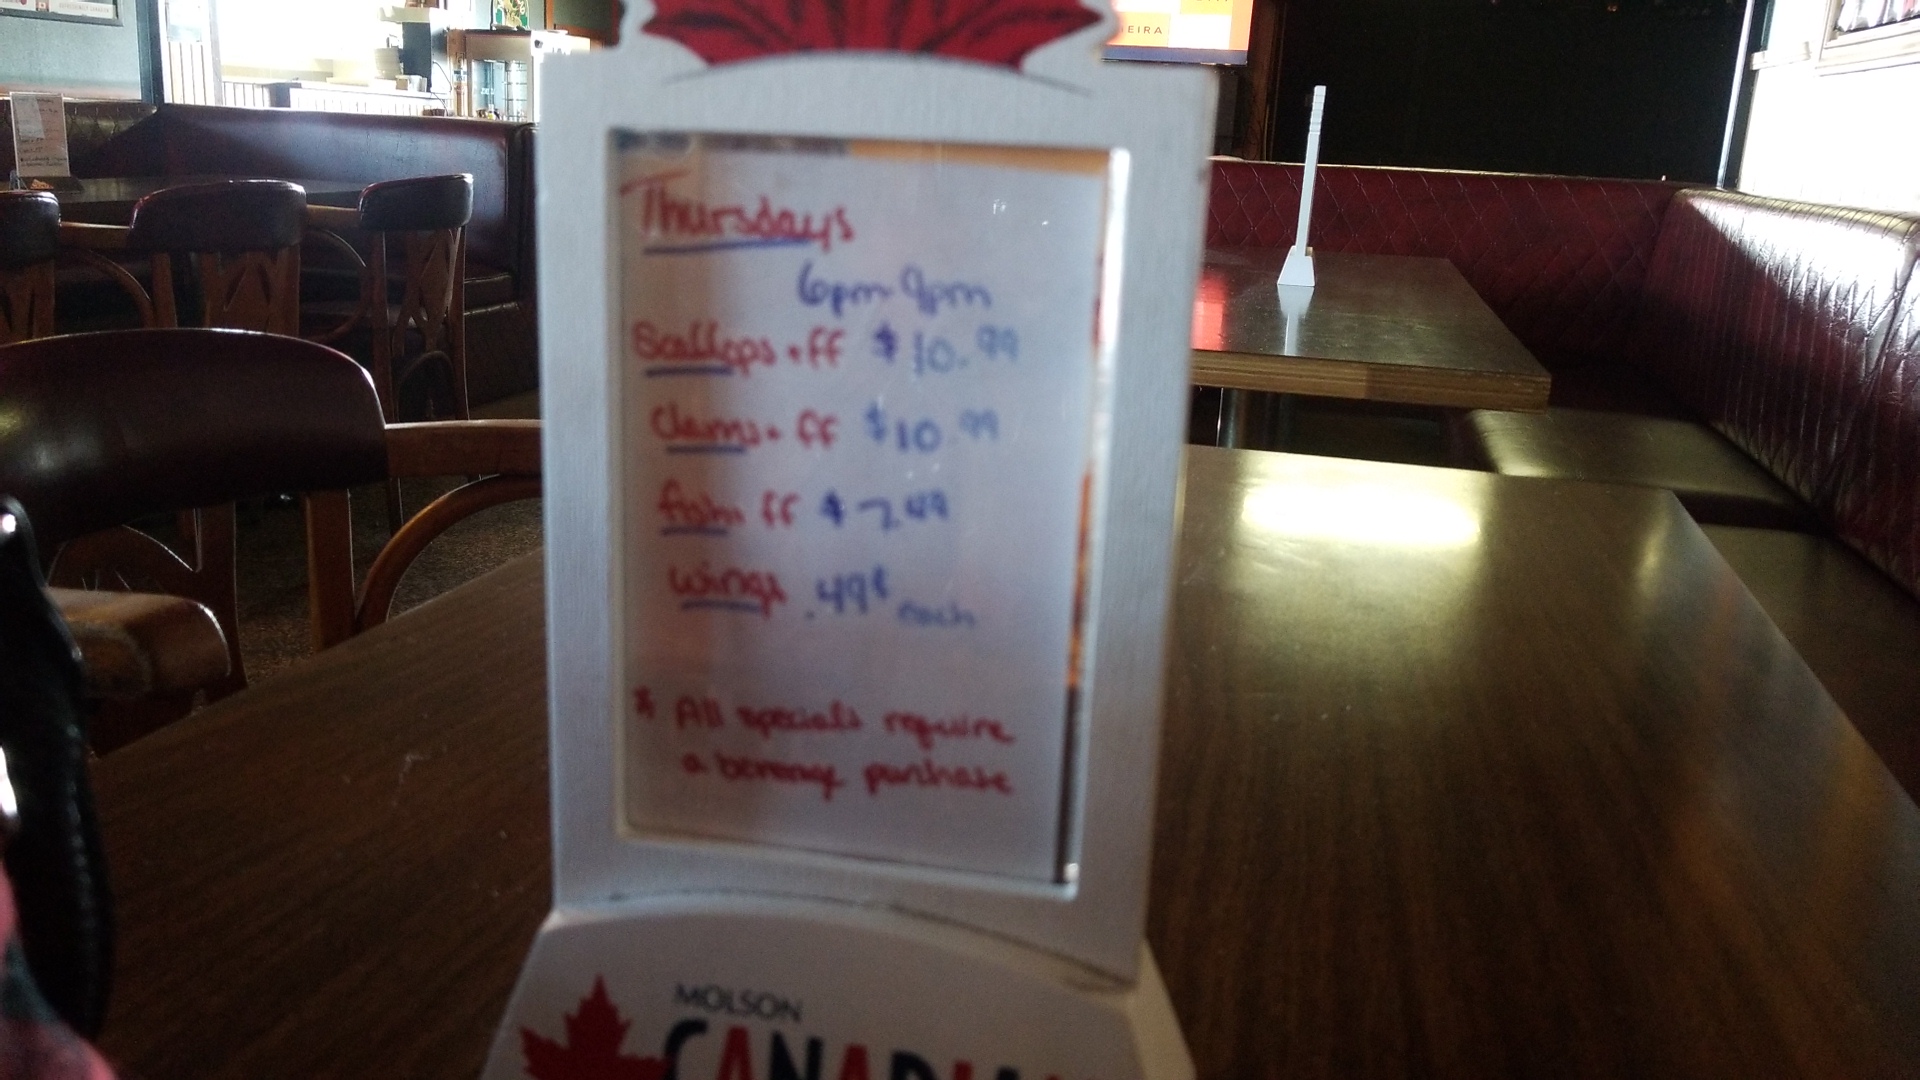 EIRA
Thursdays
6pm-9pm
Scallops + ff $10.99
Clams + ff $10.99
fish + ff $7.49
wings .49¢ each
* All specials require
a beverage purchase
MOLSON
CANADIAN